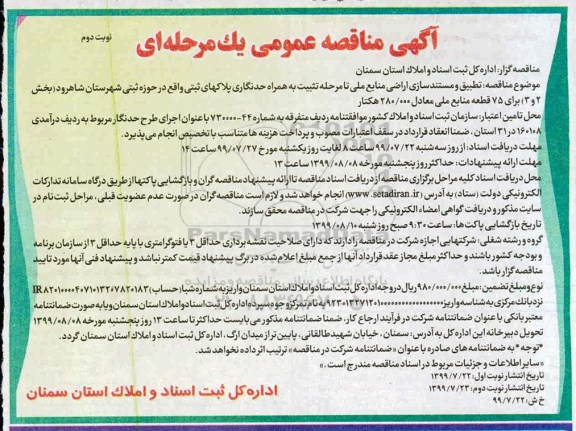 آگهی مناقصه عمومی یك‌مرحله‌ای
نوبت دوم
مناقصه گزار: اداره کل ثبت اسناد و املاك استان سمنان
موضوع مناقصه: تطبیق و مستندسازی اراضی منابع ملی تا مرحله تثبیت به همراه حدنگاری پلاکهای ثبتی واقع در حوزه ثبتی شهرستان شاهرود (بخش
۲ و ۳) برای ۷۵ قطعه منابع ملی معادل ۲۸۰/۰۰۰ هکتار
محل تامین اعتبار: سازمان ثبت اسناد و املاك کشور موافقتنامه ردیف متفرقه به شماره ۴۴-۷۳۰۰۰۰ با عنوان اجرای طرح حدنگار مربوط به ردیف درآمدی
۱۶۰۱۰۸ در ۳۱ استان، ضمنا انعقاد قرارداد در سقف اعتبارات مصوب و پرداخت هزینه ها متناسب با تخصیص انجام می‌پذیرد.
مهلت دریافت اسناد: از روز سه شنبه ۹۹/۰۷/۲۲ ساعت ۸ لغایت روز یکشنبه مورخ ۹۹/۰۷/۲۷ ساعت ۱۴
مهلت ارائه پیشنهادات: حداکثر روز پنجشنبه مورخه ۱۳۹۹/۰۸/۰۸ ساعت ۱۳
محل دریافت اسناد: کلیه مراحل برگزاری مناقصه از دریافت اسناد مناقصه تا ارائه پیشنهاد مناقصه گران و بازگشایی پاکتها از طریق درگاه سامانه تدارکات
الکترونیکی دولت (ستاد) به آدرس (www.setadiran.ir) انجام خواهد شد و لازم است مناقصه گران در صورت عدم عضویت قبلی، مراحل ثبت نام در
سایت مذکور و دریافت گواهی امضاء الکترونیکی را جهت شرکت در مناقصه محقق سازند.
تاریخ بازگشایی پاکت‌ها: ساعت ۹:۳۰ صبح روز شنبه ۱۳۹۹/۰۸/۱۰
گروه و رشته شغلی: شرکتهایی اجازه شرکت در مناقصه را دارند که دارای صلاحیت نقشه برداری حداقل ۳ یا فتوگرامتری با پایه حداقل ۳ از سازمان برنامه
و بودجه کشور باشند و حداکثر مبلغ مجاز عقد قرارداد آنها از جمع مبلغ اعلام شده در برگ پیشنهاد قیمت کمتر نباشد و پیشنهاد فنی آنها مورد تایید
مناقصه گزار باشد.
نوع و مبلغ تضمین: مبلغ ۹۸۰/۰۰۰/۰۰۰ ریال در وجه اداره کل ثبت اسناد و املاك استان سمنان واریز به شماره شبا (حساب):
نزد بانك مرکزی به شناسه واریز به نام تمرکز وجوه سپرده اداره کل ثبت اسناد و املاك استان سمنان و یا به صورت ضمانتنامه
معتبر بانکی با عنوان ضمانتنامه شرکت در فرآیند ارجاع کار، ضمنا ضمانتنامه مذکور می بایست حداکثر تا ساعت ۱۳ روز پنجشنبه مورخه ۱۳۹۹/۰۸/۰۸
تحویل دبیرخانه این اداره کل به آدرس: سمنان، خیابان شهید طالقانی، پایین تر از میدان ارگ، اداره کل ثبت اسناد و املاك استان سمنان گردد.
*توجه* به ضمانتنامه های صادره با عنوان «ضمانتنامه شرکت در مناقصه» ترتیب اثر داده نخواهد شد.
«سایر اطلاعات و جزئیات مربوط در اسناد مناقصه مندرج است.»
تاریخ انتشار نوبت اول: ۱۳۹۹/۷/۲۲
تاریخ انتشار نوبت دوم: ۱۳۹۹/۷/۲۳
خ ش: ۹۹/۷/۲۲
اداره کل ثبت اسناد و املاك استان سمنان